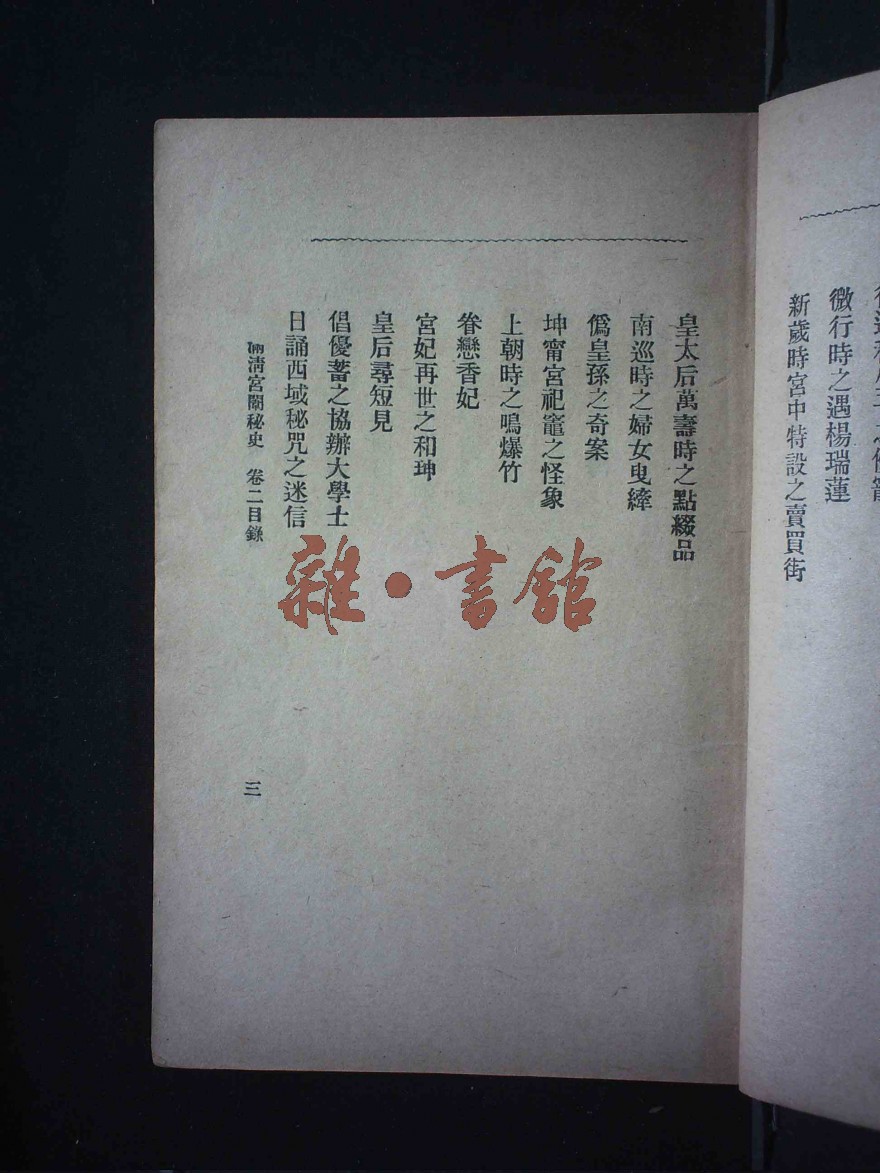 微行時之遇楊瑞蓮
新歲時宮中特設之賣買街
皇太后萬壽時之點綴品
南巡時之婦女曳縴
僞皇孫之奇案
坤甯宮祀竈之怪象
上朝時之鳴爆竹
眷戀香妃
宮妃再世之和珅
皇后尋短見
倡優蓄之協辦大學士
日誦西域秘咒之迷信
清宮闈秘史 卷二目錄
三
雜·書館